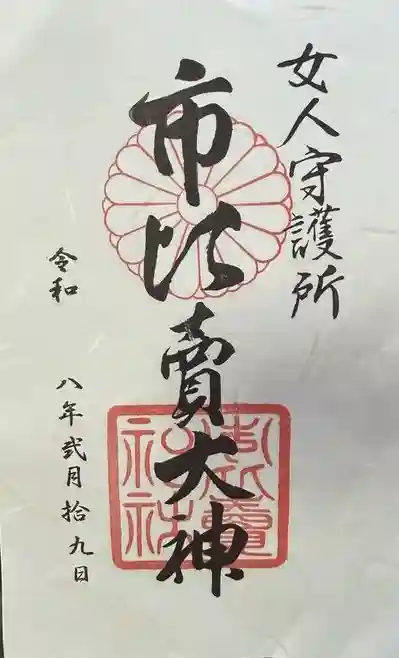 女人守護所
市比賣大神
市比賣神社
令和八年弐月拾九日